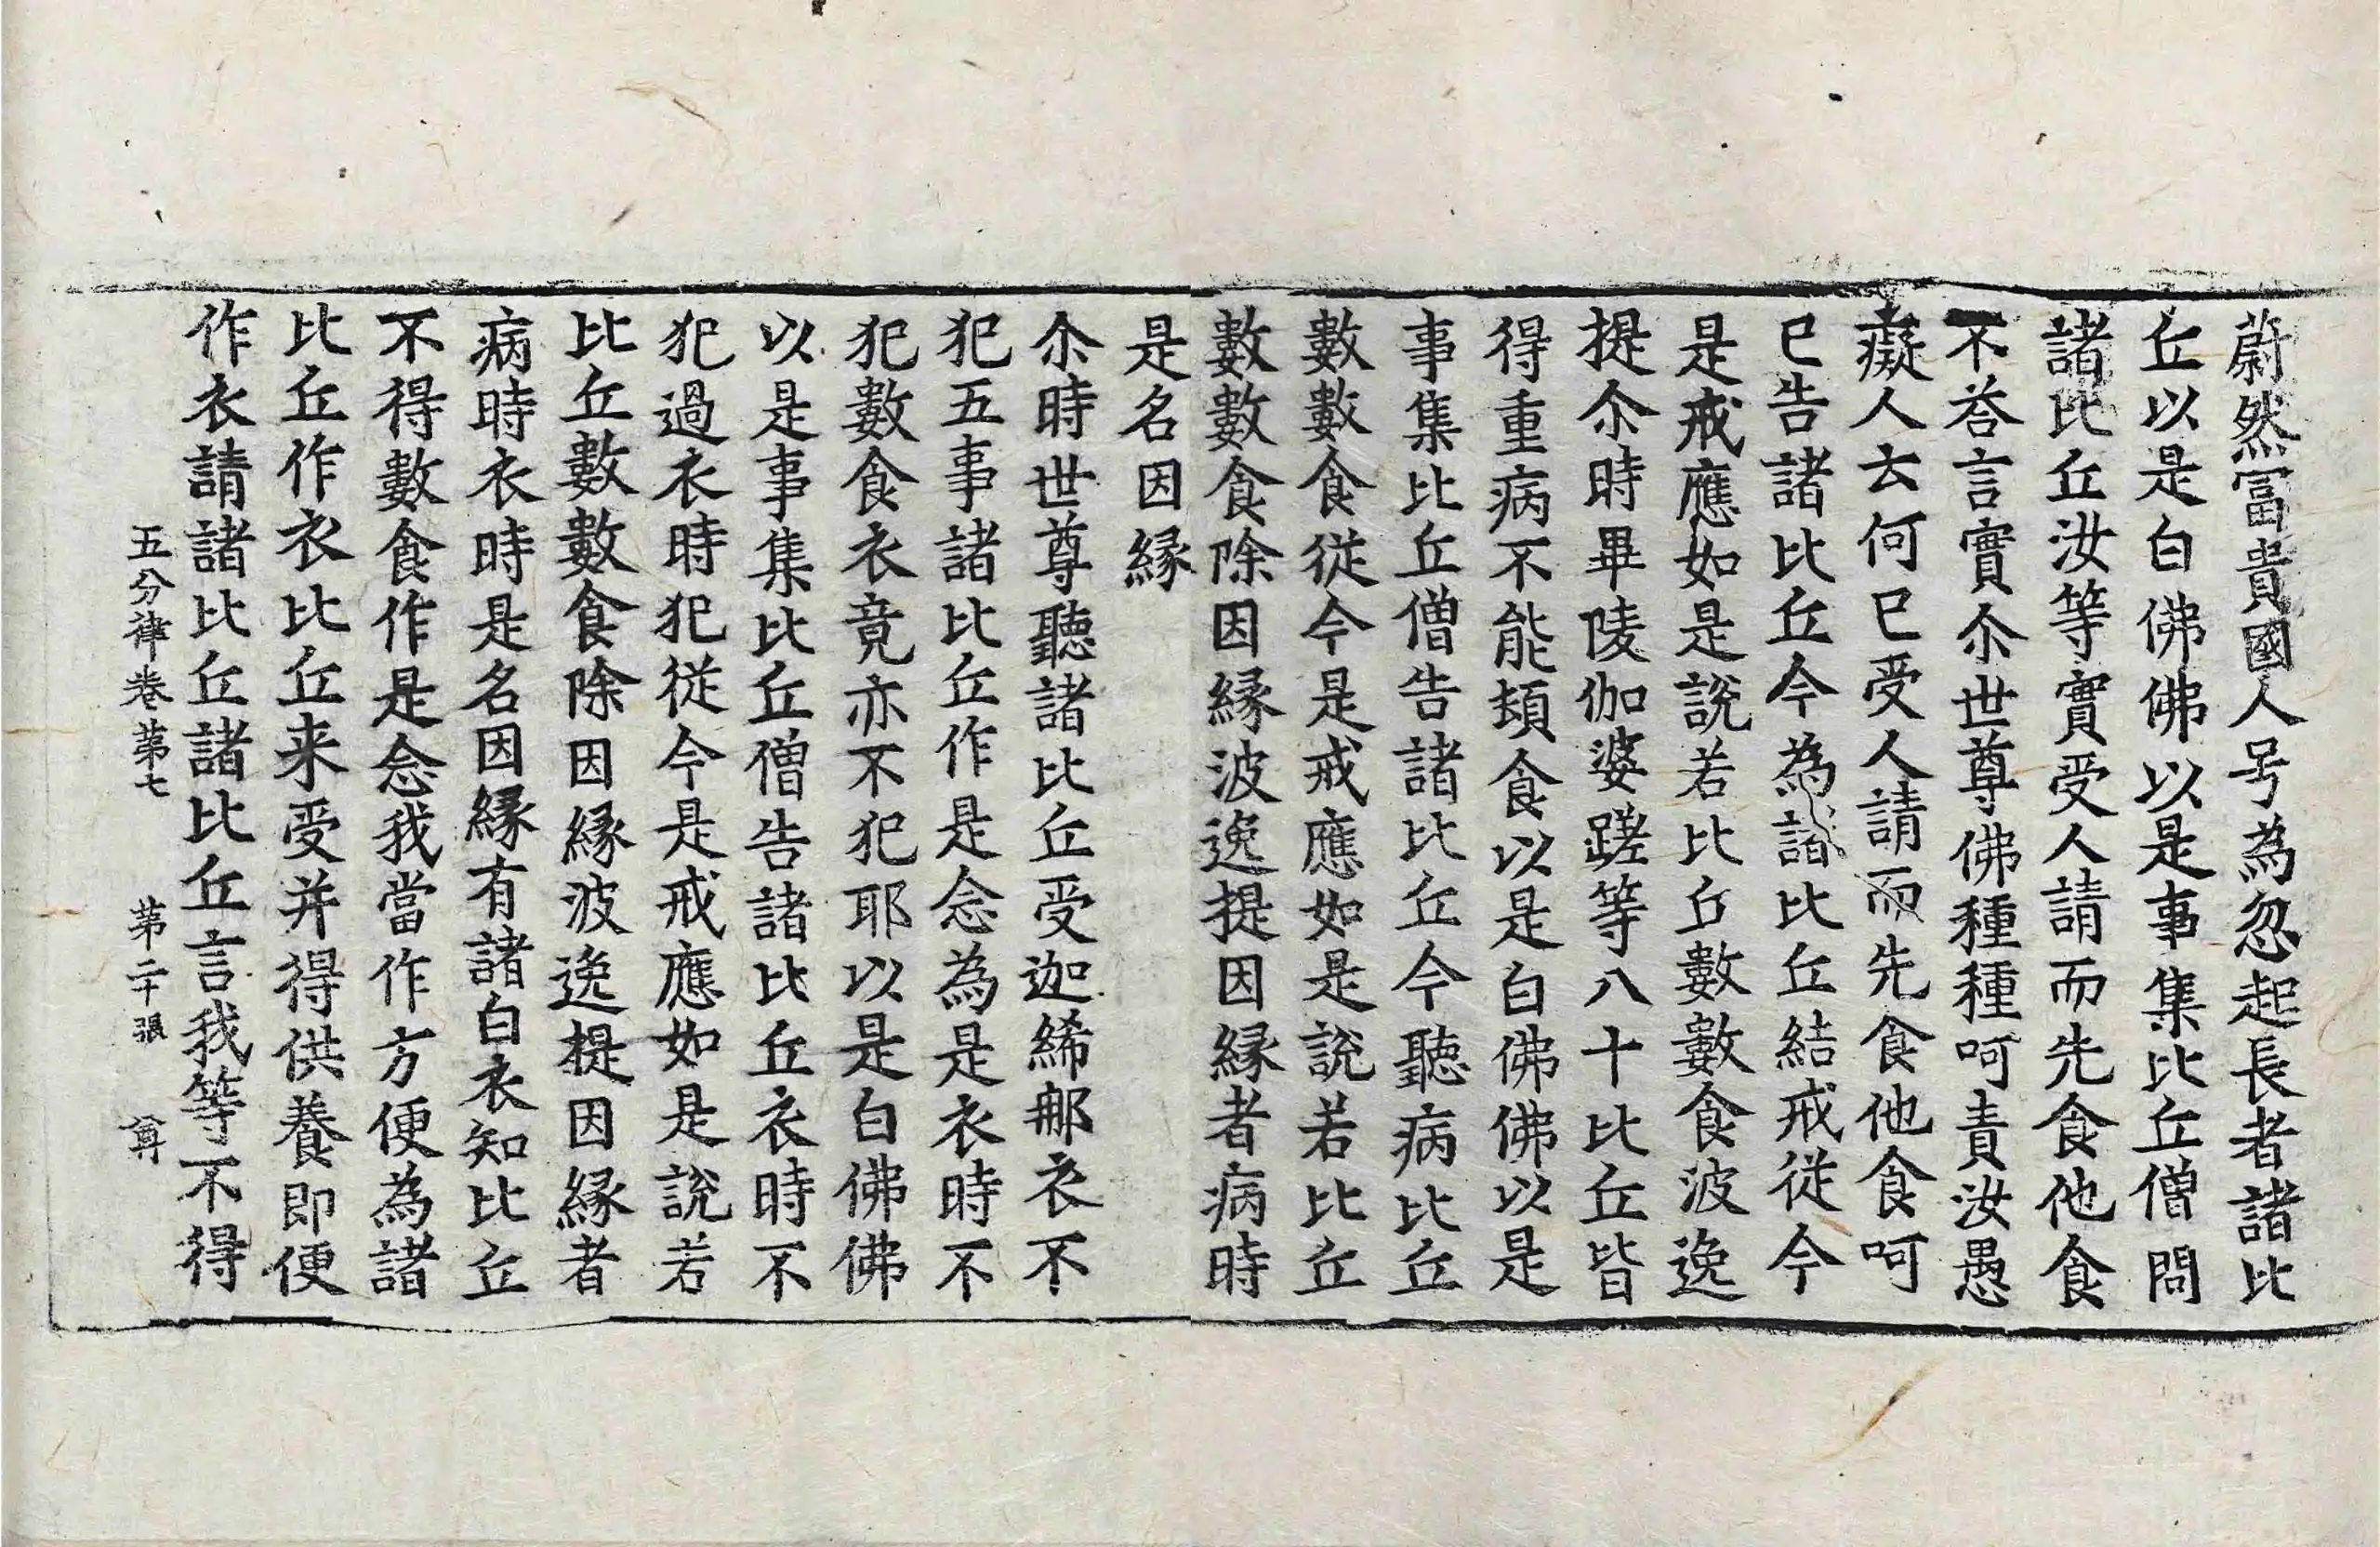 蔚然冨貴國人号為忽起長者諸比
丘以是白佛佛以是事集比丘僧問
諸比丘汝等實受人請而先食他食
不荅言實尒世尊佛種種呵責汝愚
癡人云何已受人請而先食他食呵
已告諸比丘今為諸比丘結戒從今
是戒應如是說若比丘數數食波逸
提尒時畢陵伽婆蹉等八十比丘皆
得重病不能頓食以是白佛佛以是
事集比丘僧告諸比丘今聽病比丘
數數食從今是戒應如是說若比丘
數數食除因縁波逸提因縁者病時
是名因縁
尒時世尊聽諸比丘受迦絺那衣不
犯五事諸比丘作是念為是衣時不
犯數食衣竟亦不犯耶以是白佛佛
以是事集比丘僧告諸比丘衣時不
犯過衣時犯從今是戒應如是說若
比丘數數食除因縁波逸提因縁者
病時衣時是名因縁有諸白衣知比丘
不得數食作是念我當作方便為諸
比丘作衣比丘来受并得供養即便
作衣請諸比丘諸比丘言我等不得
五分律卷第七 第二十張 尊